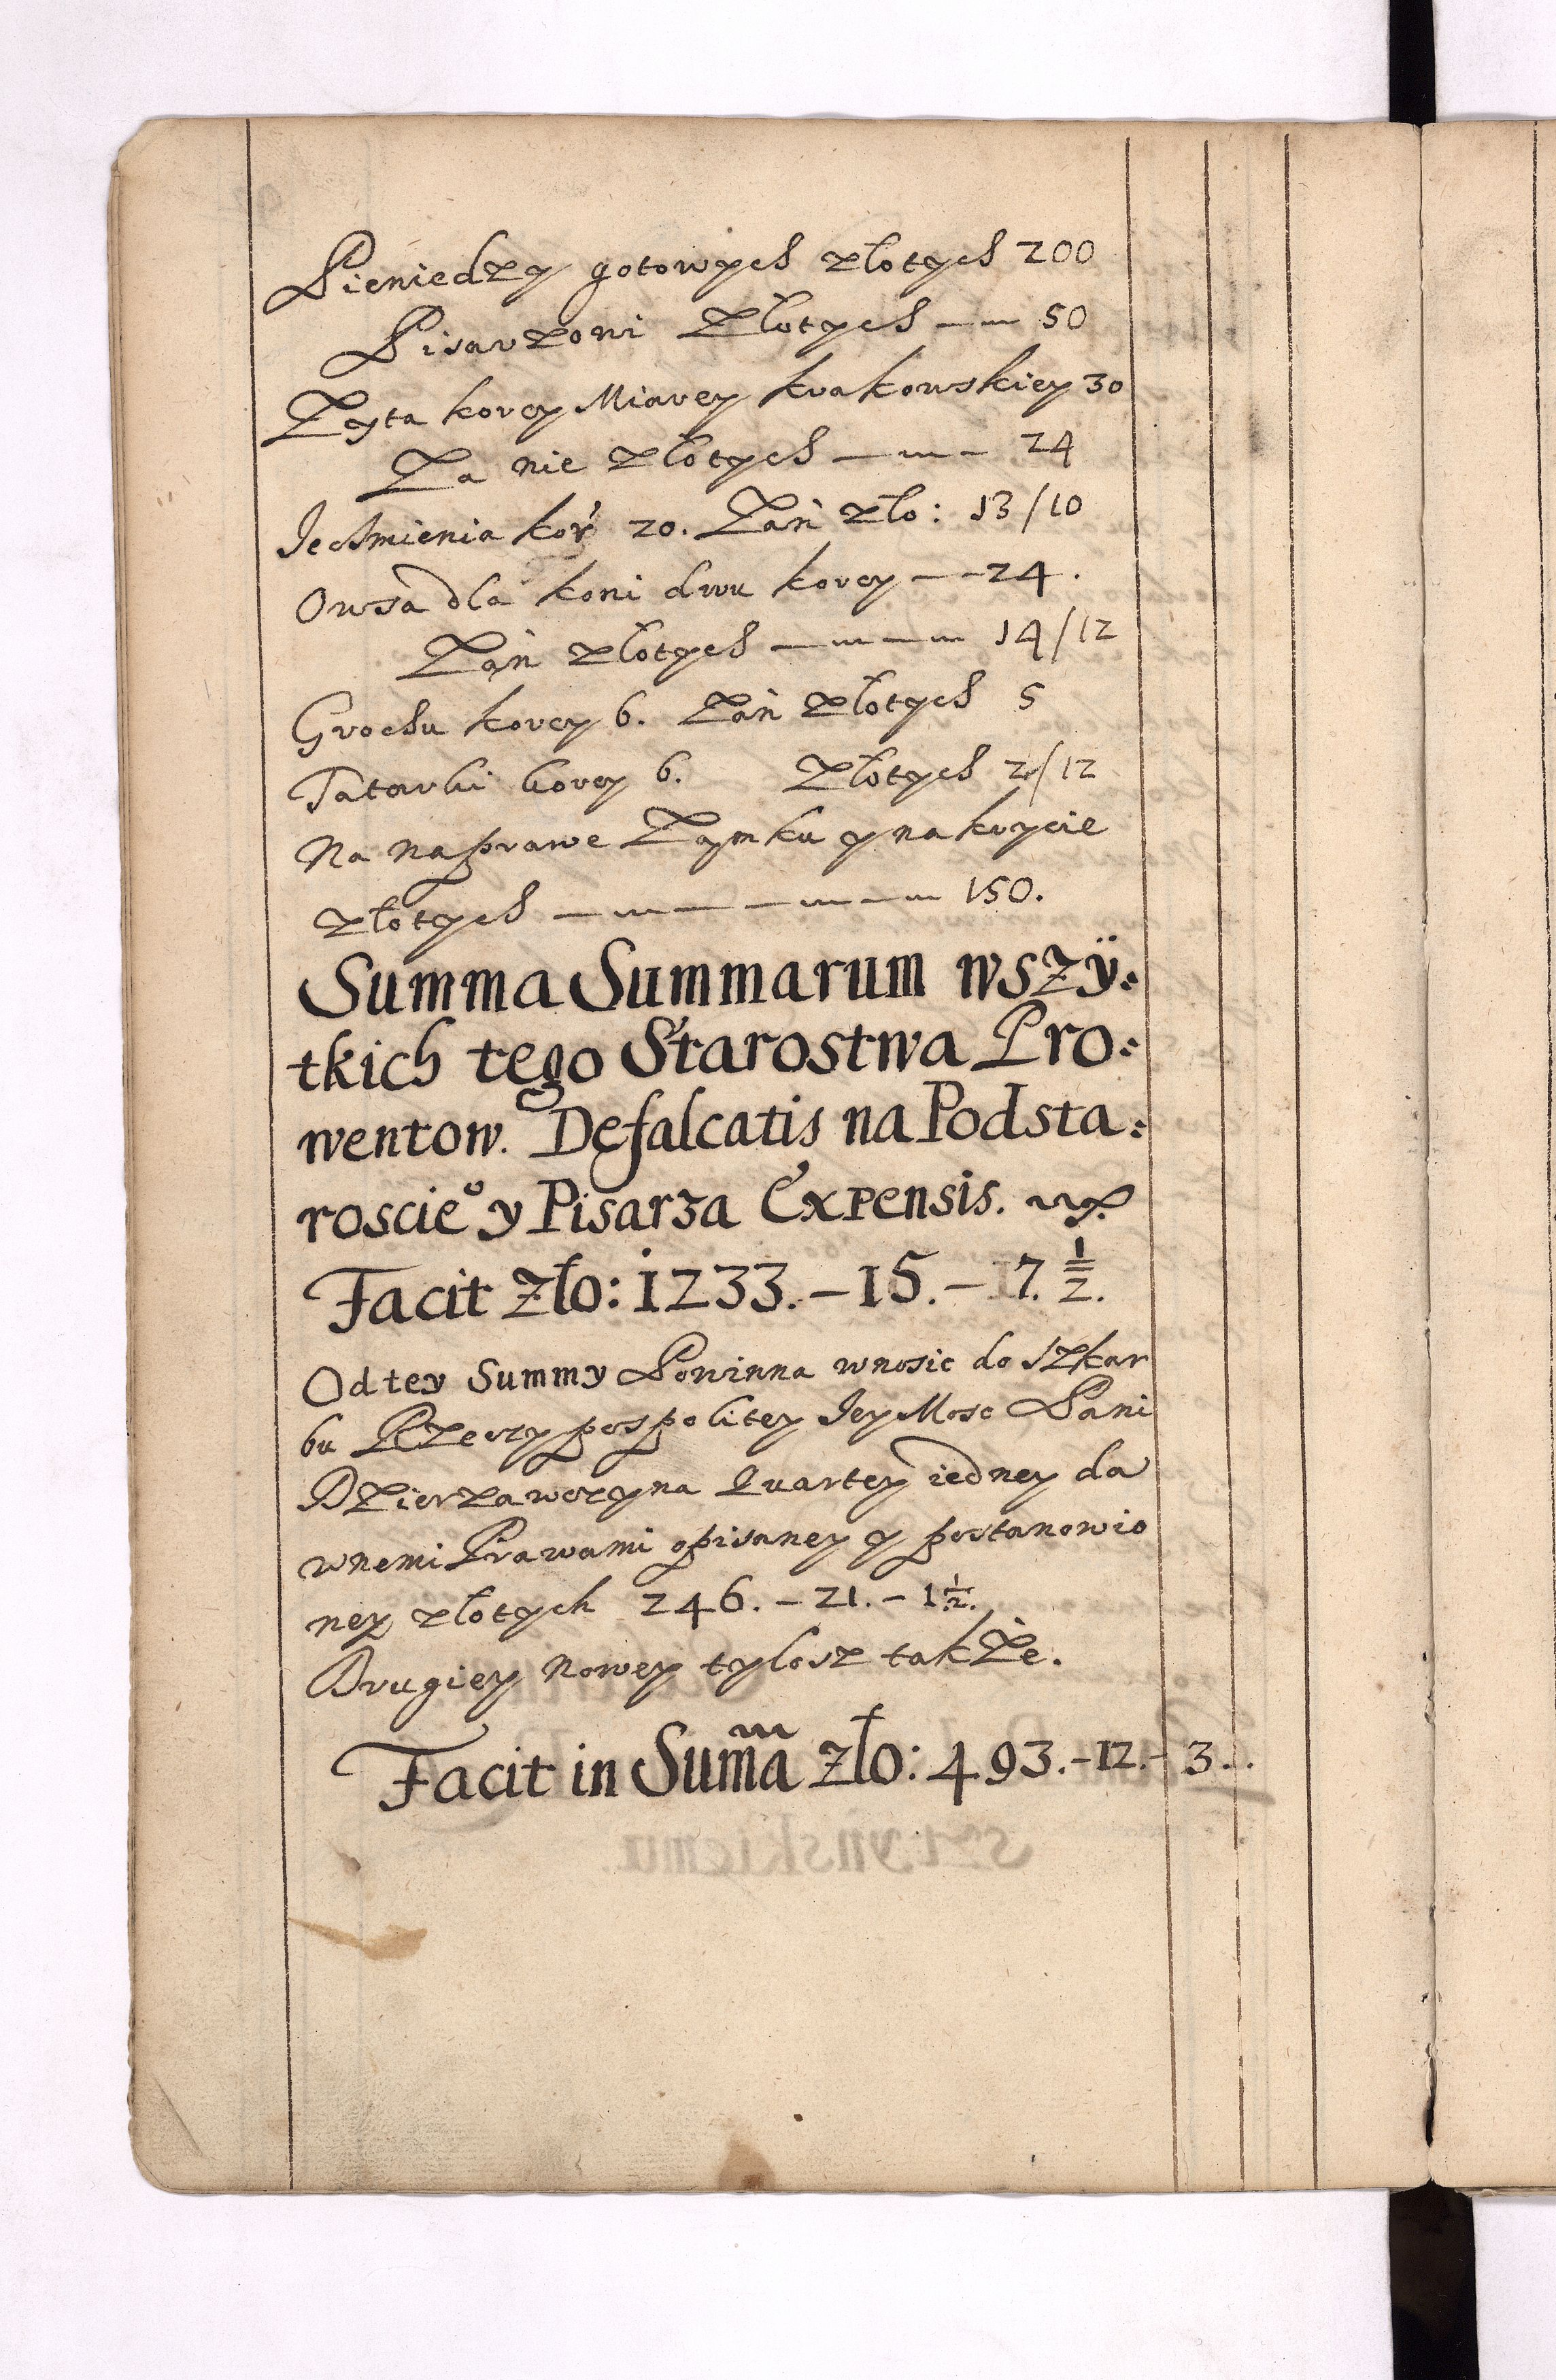 Pieniedzy gotowych złotych 200
Pisarzowi Złotych —— 50
Zyta korcy Miarey krakowskiey 30
Za nie złotych ——— 24
Jeczmienia kor 20. Zań zło: 13/10
Owsa dla koni dwu korcy —— 24.
Zań złotych ———— 14/12
Grochu korcy 6. Zań Złotych 5
Tatarki korcy 6. Złotych 2/12
Na naprawe Zamku y nakrycie
złotych ——————— 150.
Summa Summarum wszÿ:
tkich tego Starostwa Pro:
wentow. Defalcatis na Podsta:
roscieº y Pisarza Expensis.
Facit Zło: 1233. – 15. – 7. ½.
Od tey Summy Powinna wnosic do szkar
bu Rzeczypospolitey Jey Mosc Pani
Dzierzawczyna Quartey iedney da
wnemi Prawami opisaney y postanowio
ney złotych 246. – 21. – 1½.
Drugiey Nowey tylosz także.
Facit in Suma̅ Zło: 493. – 12. – 3.